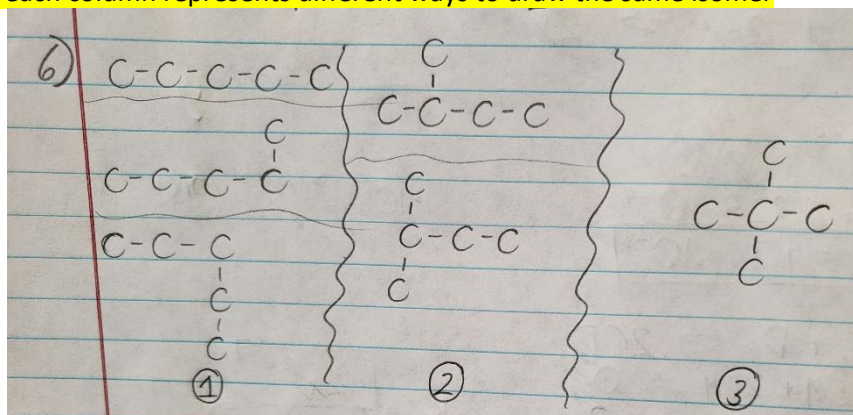 each column represents different ways to draw the same isomer
6)
C-C-C-C-C
C
C-C-C-C
C-C-C
C
C
①
C
C-C-C-C
C
C-C-C
C
②
C
C-C-C
C
③